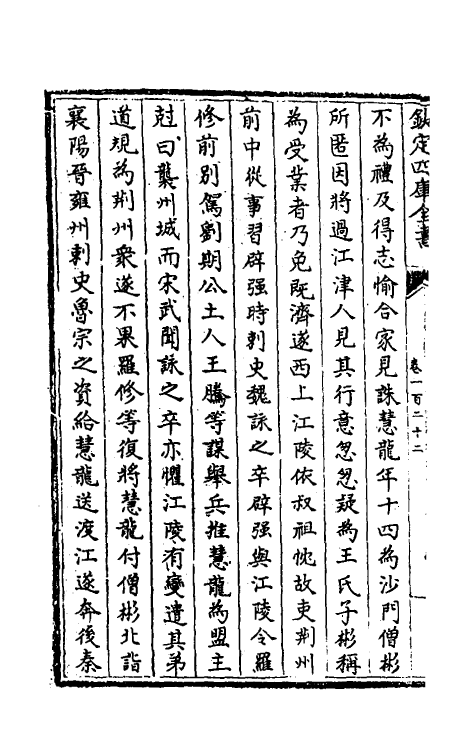 欽定四庫全書
卷一百二十二
不為禮及得志愉合家見誅慧龍年十四為沙門僧彬
所匿因將過江津人見其行意忽忽疑為王氏子彬稱
為受業者乃免既濟遂西上江陵依叔祖忱故吏荆州
前中從事習辟强時刺史魏詠之卒辟强與江陵令羅
修前别駕劉期公土人王騰等謀舉兵推慧龍為盟主
尅曰襲州城而宋武聞詠之卒亦懼江陵有變遣其弟
道規為荆州衆遂不果羅修等復將慧龍付僧彬北詣
襄陽晉雍州刺史魯宗之資給慧龍送渡江遂奔後秦